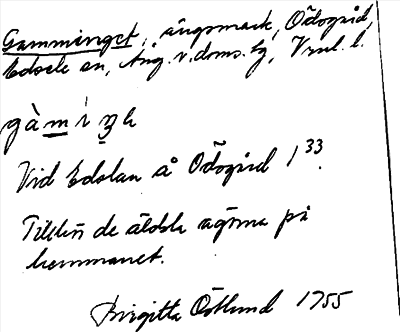 Gamminget, ängsmark, Ödegård,
Edsele sn, Ång. v. doms. tg, Vnl. l.
gàmiŋe
Vid Edslan å Ödegård 1 33.
Tillhör de äldsta ägorna på
hemmanet.
Birgitta Östlund 1955